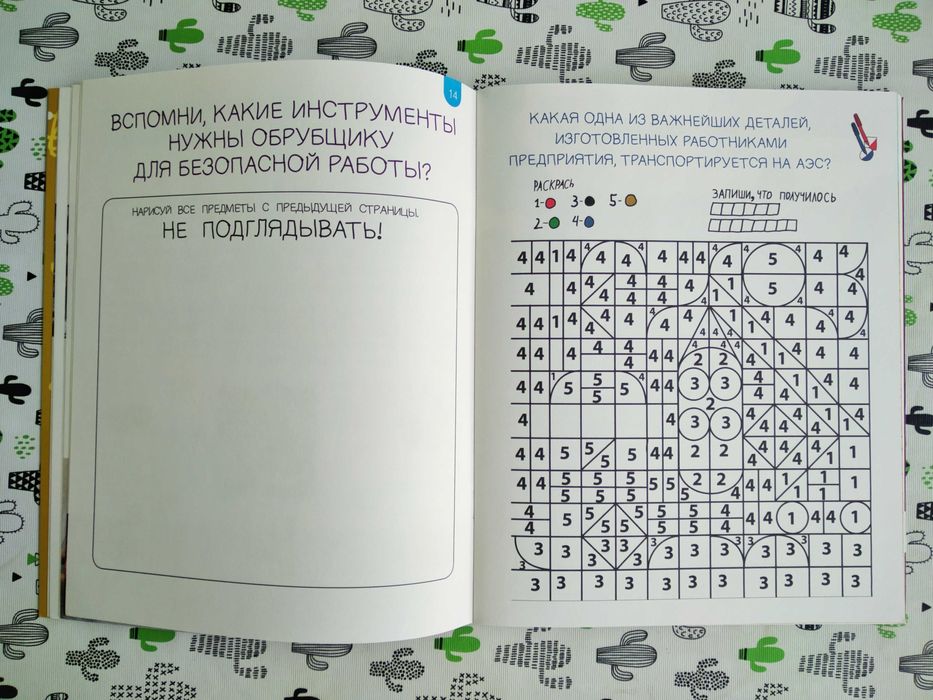 14
ВСПОМНИ, КАКИЕ ИНСТРУМЕНТЫ
НУЖНЫ ОБРУБЩИКУ
ДЛЯ БЕЗОПАСНОЙ РАБОТЫ?
НАРИСУЙ ВСЕ ПРЕДМЕТЫ С ПРЕДЫДУЩЕЙ СТРАНИЦЫ.
НЕ ПОДГЛЯДЫВАТЬ!
КАКАЯ ОДНА ИЗ ВАЖНЕЙШИХ ДЕТАЛЕЙ,
ИЗГОТОВЛЕННЫХ РАБОТНИКАМИ
ПРЕДПРИЯТИЯ, ТРАНСПОРТИРУЕТСЯ НА АЭС?
РАСКРАСЬ
1- 3- 5-
2- 4-
ЗАПИШИ, ЧТО ПОЛУЧИЛОСЬ
4 4 1 4 4 4 4 4 4 4 4 4 5 4 4
4 4 4 4 4 4 4 4 1 1 4 5 4 4 4 4
4 4 1 4 4 4 4 4 4 1 1 4 4 4 4
4 4 4 4 4 4 4 2 2 4 1 1 4 4 4
4 4 1 5 5 5 5 4 4 4 3 3 4 4 1 4 1 4
4 4 3 3 2 4 4 4 4 4 1 4 1
4 4 5 5 5 5 4 4 2 2 4 4 4 4 1 1
4 4 5 5 5 5 5 5 5 5 5 2 2 4 4 4 1 1 1 1 1
4 4 5 5 5 5 5 5 5 5 5 4 4 4 4 1 4 4 1
3 3 3 3 3 3 3 3 3 3 3 3 3 3 3 3
3 3 3 3 3 3 3 3 3 3 3